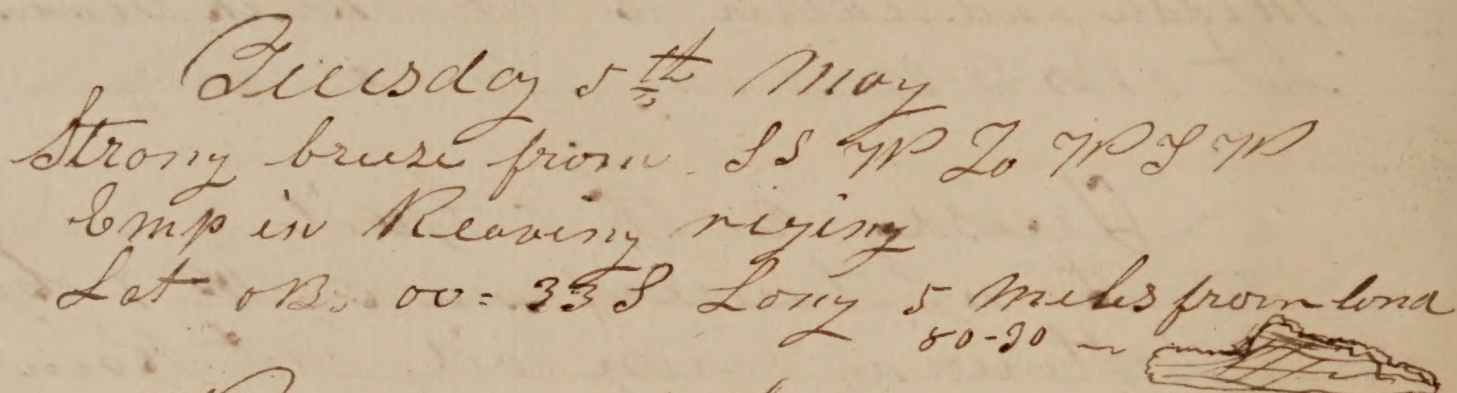 Tuesday 5th May
Strong breeze from SS W To W S W
Emp in Reaving riging
Lat oBs 00=33 S Long 5 Miles from land
80-30